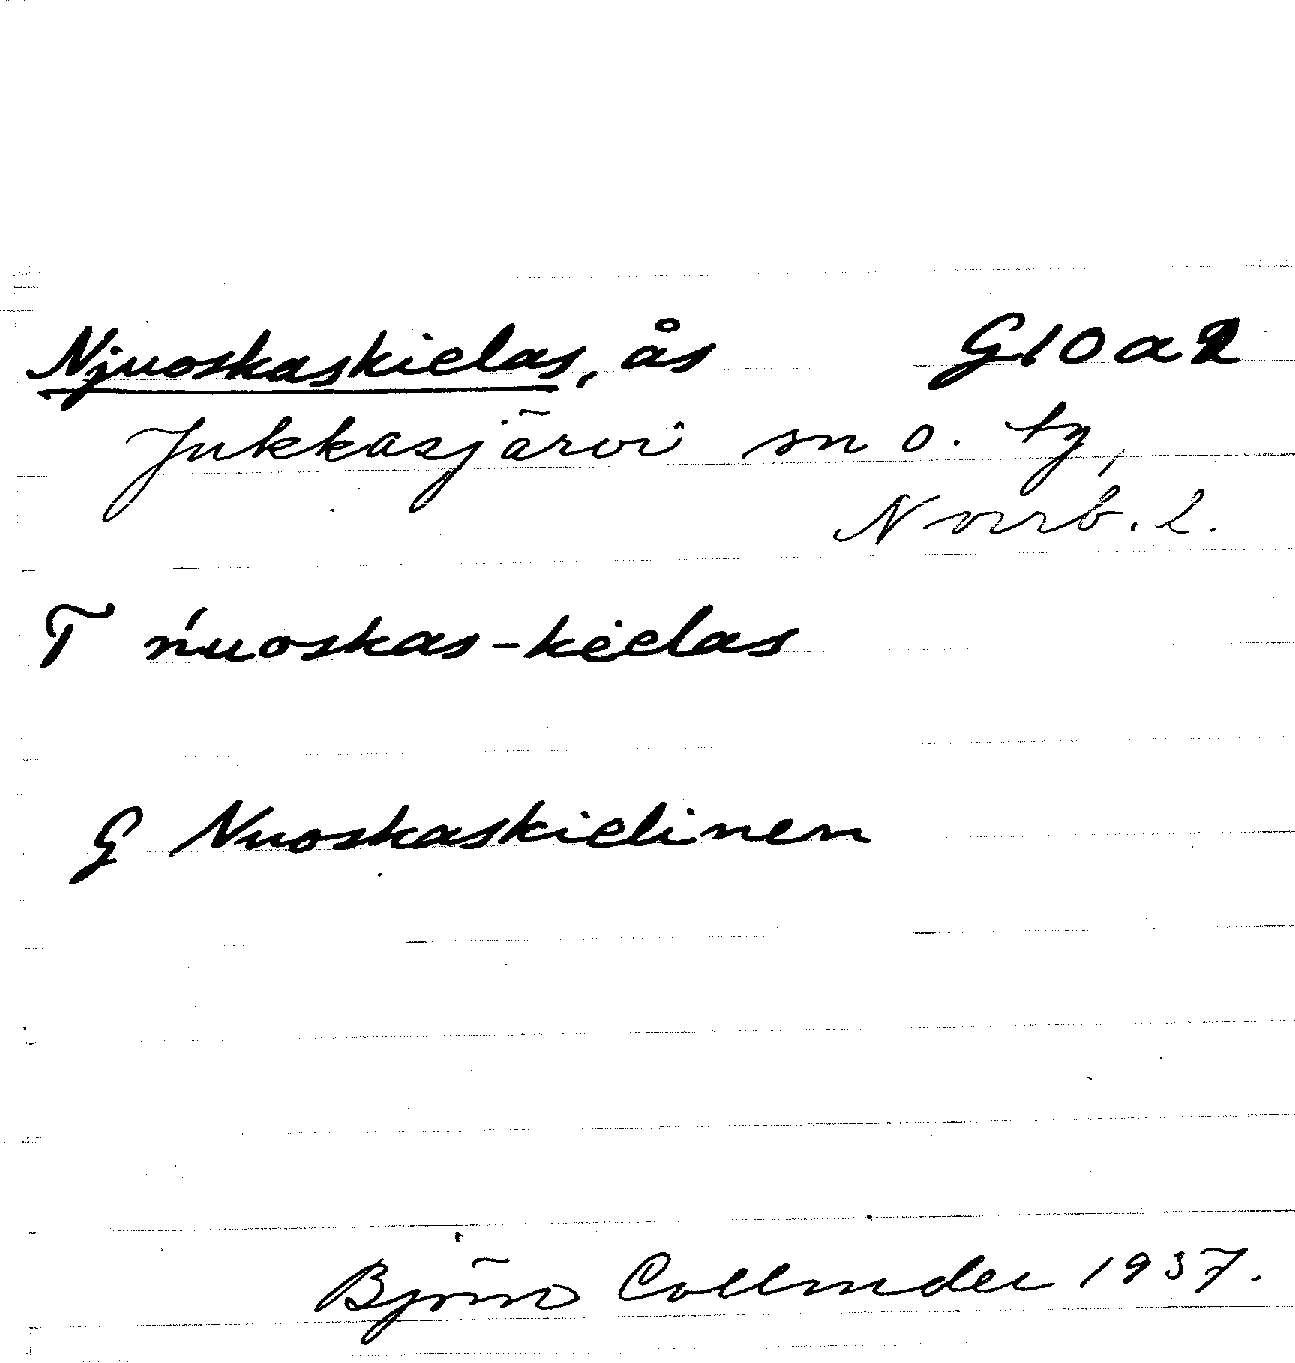 Njuoskaskielas, ås G10a2
Jukkasjärvi sn o. tg,
Norrb. l.
T ńuoskas-kielas
G Nuoskaskielinen
Björn Collinder 1937.